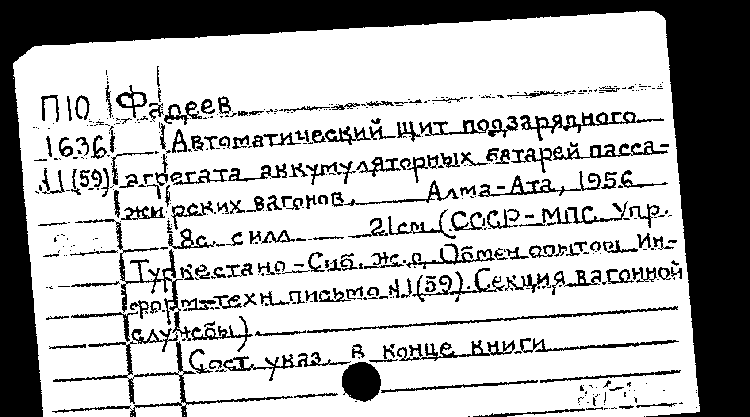 П10 Фадеев
1636 Автоматический щит подзарядного
№1(59) агрегата аккумуляторных батарей пасса-
жирских вагонов. Алма-Ата, 1956
8с. с илл. 21см. (СССР-МПС. Упр.
Туркестано-Сиб. ж.д. Обмен опытом. Ин-
форм-техн. письмо №1(59). Секция вагонной
службы).
Сост. указ. в конце книги